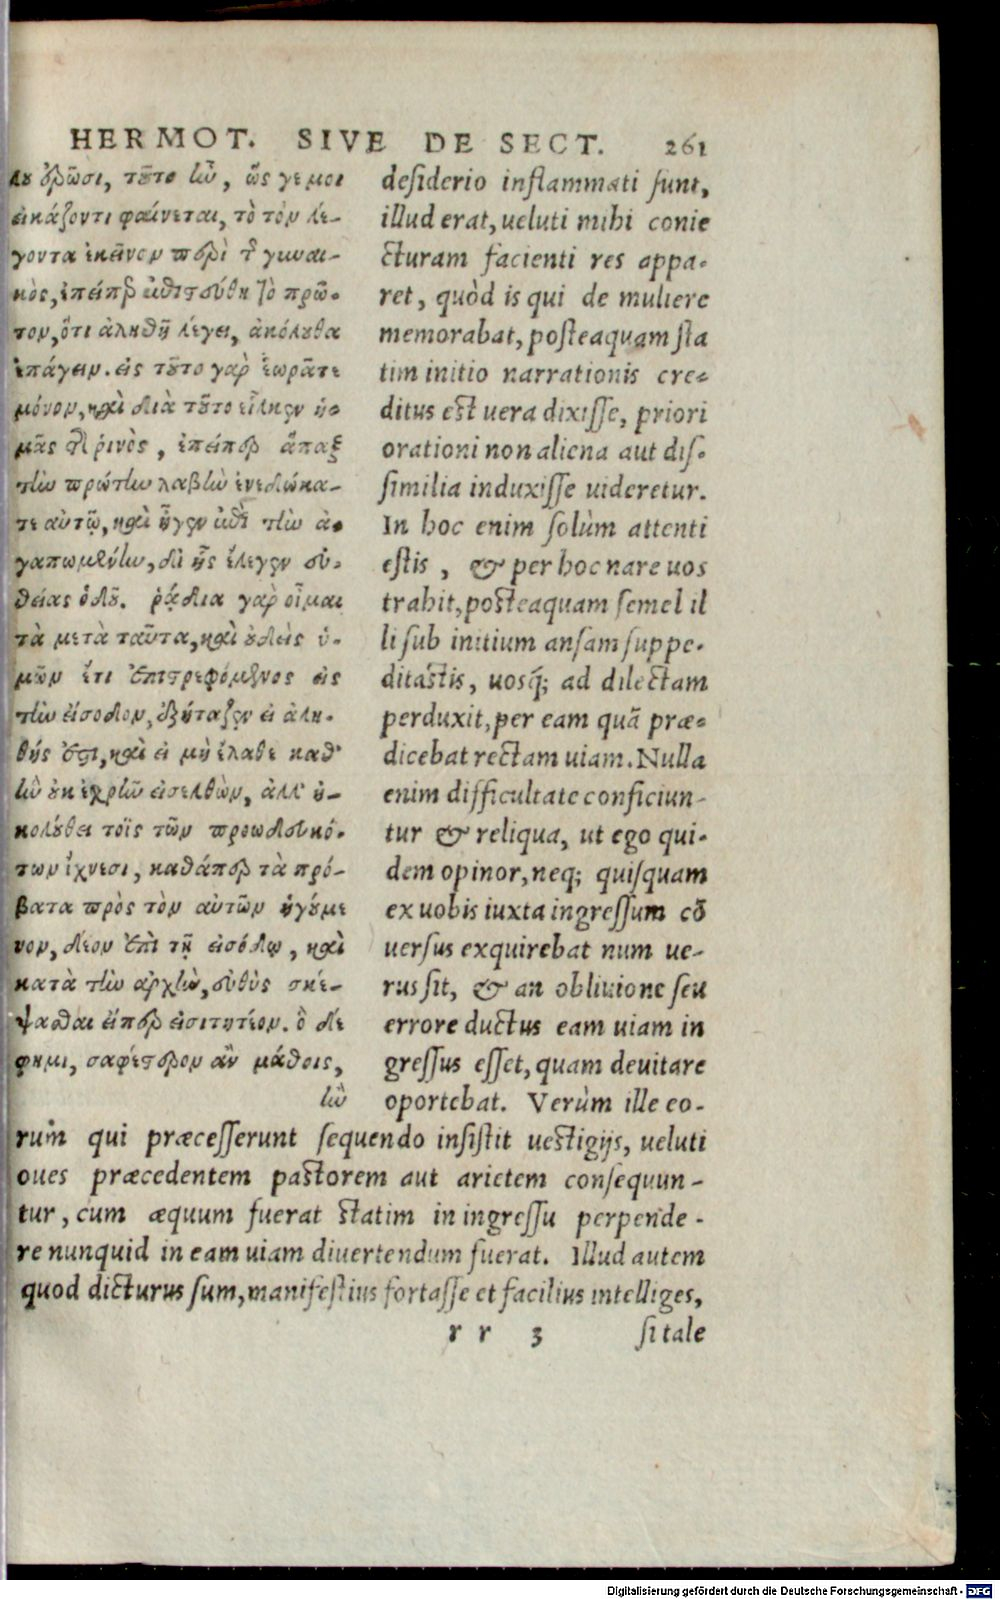 HERMOT. SIVE DE SECT. 261
λου ὁρῶσι, τοῦτο ἦν, ὥς γε μοι
εἰκάζοντι φαίνεται, τὸ τὸν λέ-
γοντα ἐκεῖνον περὶ τῆς γυναι-
κὸς, ἐπείπερ ἐπιστεύθη τὸ πρῶ-
τον, ὅτι ἀληθῆ λέγει, ἀκόλουθα
ἐπάγειν. εἰς τοῦτο γὰρ ἑωρᾶτε
μόνον, καὶ διὰ τοῦτο εἷλκεν ὑ-
μᾶς τῆς ῥινὸς, ἐπείπερ ἅπαξ
τὴν πρώτην λαβὴν ἐνεδώκα-
τε αὐτῷ, καὶ ἦγεν ἐπὶ τὴν ἀ-
γαπωμένην, δι ἧς ἔλεγεν εὐ-
θείας ὁδοῦ. ῥᾴδια γὰρ οἶμαι
τὰ μετὰ ταῦτα, καὶ οὐδεὶς ὑ-
μῶν ἔτι ἐπιστρεφόμενος εἰς
τὴν εἴσοδον, ἐξήταζεν εἰ ἀλη-
θής ἐστι, καὶ εἰ μὴ ἔλαθε καθ'
ἣν οὐκ ἐχρῆν εἰσελθὼν, ἀλλ' ἠ-
κολούθει τοῖς τῶν προωδευκό-
των ἴχνεσι, καθάπερ τὰ πρό-
βατα πρὸς τὸν αὐτῶν ἡγούμε
νον, δέον ἐπὶ τῇ εἰσόδῳ, καὶ
κατὰ τὴν ἀρχὴν, εὐθὺς σκέ-
ψασθαι εἴπερ εἰσιτητέον. ὃ δέ
φημι, σαφέστερον ἂν μάθοις,
ἢν
desiderio inflammati sunt,
illud erat, ueluti mihi conie
cturam facienti res appa-
ret, quòd is qui de muliere
memorabat, posteaquam sta
tim initio narrationis cre-
ditus est uera dixisse, priori
orationi non aliena aut dis-
similia induxisse uideretur.
In hoc enim solùm attenti
estis, & per hoc nare uos
trahit, posteaquam semel il
li sub initium ansam suppe-
ditastis, uosq́; ad dilectam
perduxit, per eam quã præ-
dicebat rectam uiam. Nulla
enim difficultate conficiun-
tur & reliqua, ut ego qui-
dem opinor, neq; quisquam
ex uobis iuxta ingressum cõ
uersus exquirebat num ue-
rus sit, & an obliuione seu
errore ductus eam uiam in
gressus esset, quam deuitare
oportebat. Verùm ille eo-
rum qui præcesserunt sequendo insistit uestigijs, ueluti
oues præcedentem pastorem aut arietem consequun-
tur, cum æquum fuerat statim in ingressu perpende-
re nunquid in eam uiam diuertendum fuerat. Illud autem
quod dicturus sum, manifestius fortasse et facilius intelliges,
rr 3 si tale
Digitalisierung gefördert durch die Deutsche Forschungsgemeinschaft - DFG